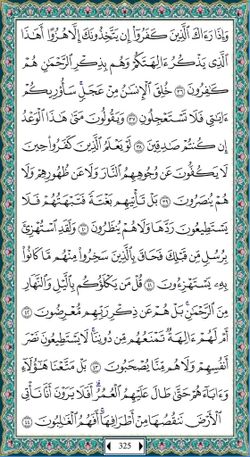 وَإِذَا رَءَاكَ ٱلَّذِينَ كَفَرُوٓا۟ إِن يَتَّخِذُونَكَ إِلَّا هُزُوًا أَهَٰذَا
ٱلَّذِى يَذْكُرُ ءَالِهَتَكُمْ وَهُم بِذِكْرِ ٱلرَّحْمَٰنِ هُمْ
كَٰفِرُونَ ٣٦ خُلِقَ ٱلْإِنسَٰنُ مِنْ عَجَلٍ سَأُو۟رِيكُمْ
ءَايَٰتِى فَلَا تَسْتَعْجِلُونِ ٣٧ وَيَقُولُونَ مَتَىٰ هَٰذَا ٱلْوَعْدُ
إِن كُنتُمْ صَٰدِقِينَ ٣٨ لَوْ يَعْلَمُ ٱلَّذِينَ كَفَرُوا۟ حِينَ
لَا يَكُفُّونَ عَن وُجُوهِهِمُ ٱلنَّارَ وَلَا عَن ظُهُورِهِمْ وَلَا
هُمْ يُنصَرُونَ ٣٩ بَلْ تَأْتِيهِم بَغْتَةً فَتَبْهَتُهُمْ فَلَا
يَسْتَطِيعُونَ رَدَّهَا وَلَا هُمْ يُنظَرُونَ ٤٠ وَلَقَدِ ٱسْتُهْزِئَ
بِرُسُلٍ مِّن قَبْلِكَ فَحَاقَ بِٱلَّذِينَ سَخِرُوا۟ مِنْهُم مَّا كَانُوا۟
بِهِۦ يَسْتَهْزِءُونَ ٤١ قُلْ مَن يَكْلَؤُكُم بِٱلَّيْلِ وَٱلنَّهَارِ
مِنَ ٱلرَّحْمَٰنِ بَلْ هُمْ عَن ذِكْرِ رَبِّهِم مُّعْرِضُونَ ٤٢
أَمْ لَهُمْ ءَالِهَةٌ تَمْنَعُهُم مِّن دُونِنَا لَا يَسْتَطِيعُونَ نَصْرَ
أَنفُسِهِمْ وَلَا هُم مِّنَّا يُصْحَبُونَ ٤٣ بَلْ مَتَّعْنَا هَٰٓؤُلَآءِ
وَءَابَآءَهُمْ حَتَّىٰ طَالَ عَلَيْهِمُ ٱلْعُمُرُ أَفَلَا يَرَوْنَ أَنَّا نَأْتِى
ٱلْأَرْضَ نَنقُصُهَا مِنْ أَطْرَافِهَآ أَفَهُمُ ٱلْغَٰلِبُونَ ٤٤
325